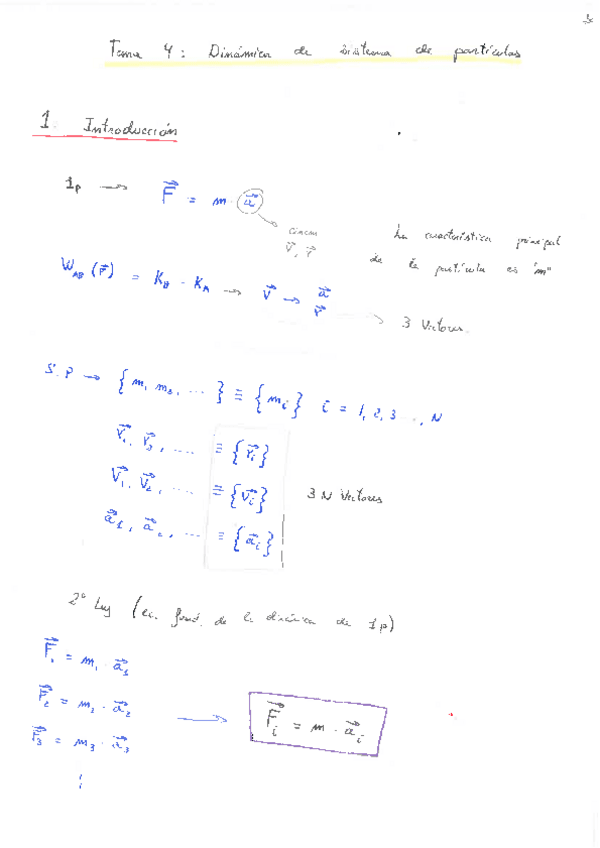 Tema 4: Dinámica de sistema de partículas
1. Introducción
1p → F⃗ = m · a⃗
cinem
v⃗, r⃗
La característica principal
de la partícula es "m"
W_AB (F⃗) = K_B - K_A → v⃗ → a⃗
r⃗
→ 3 Vectores.
S.P → {m, m₂, ...} ≡ {mᵢ} i = 1, 2, 3 ..., N
r⃗₁, r⃗₂, .... ≡ {r⃗ᵢ}
v⃗₁, v⃗₂, .... ≡ {v⃗ᵢ} 3N Vectores
a⃗₁, a⃗₂, ... ≡ {a⃗ᵢ}
2º Ley (ec. fund. de la de 1p)
F⃗₁ = m₁ · a⃗₁
F⃗₂ = m₂ · a⃗₂ → F⃗ᵢ = m · a⃗ᵢ
F⃗₃ = m₃ · a⃗₃
⋮